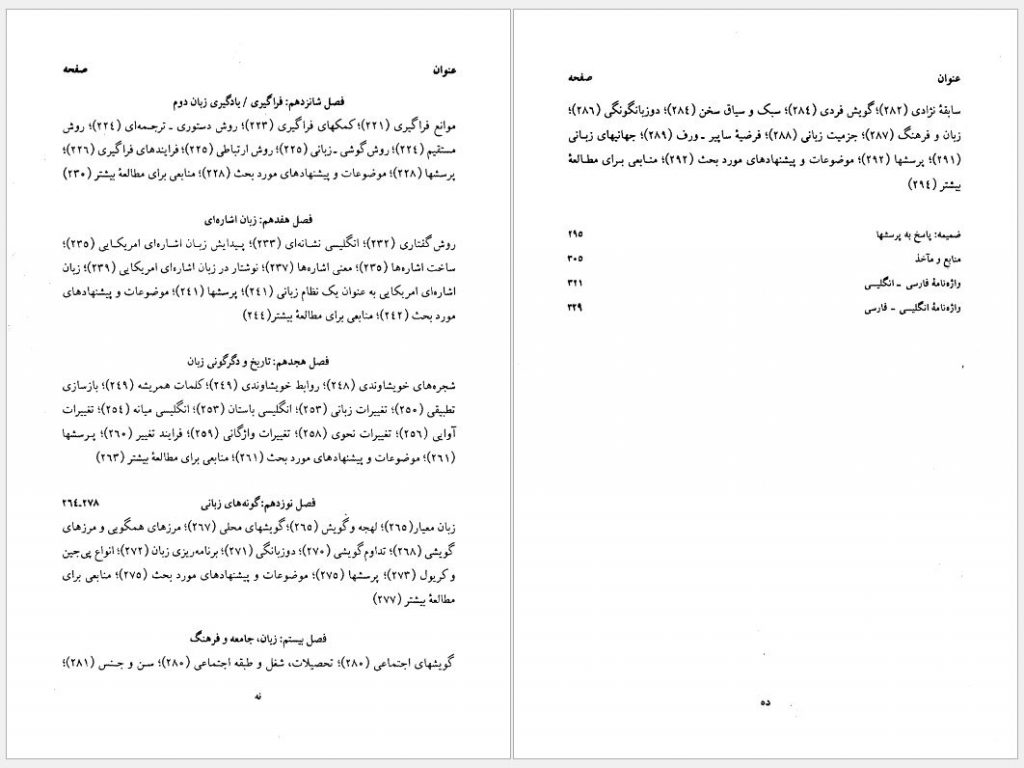 عنوان صفحه
فصل شانزدهم: فراگیری / یادگیری زبان دوم
موانع فراگیری (۲۲۱)؛ کمکهای فراگیری (۲۲۳)؛ روش دستوری ـ ترجمه‌ای (۲۲۴)؛ روش
مستقیم (۲۲۴)؛ روش گوشی ـ زبانی (۲۲۵)؛ روش ارتباطی (۲۲۵)؛ فرایندهای فراگیری (۲۲۶)؛
پرسشها (۲۲۸)؛ موضوعات و پیشنهادهای مورد بحث (۲۲۸)؛ منابعی برای مطالعهٔ بیشتر (۲۳۰)
فصل هفدهم: زبان اشاره‌ای
روش گفتاری (۲۳۲)؛ انگلیسی نشانه‌ای (۲۳۳)؛ پیدایش زبان اشاره‌ای امریکایی (۲۳۵)؛
ساخت اشاره‌ها (۲۳۵)؛ معنی اشاره‌ها (۲۳۷)؛ نوشتار در زبان اشاره‌ای امریکایی (۲۳۹)؛ زبان
اشاره‌ای امریکایی به عنوان یک نظام زبانی (۲۴۱)؛ پرسشها (۲۴۱)؛ موضوعات و پیشنهادهای
مورد بحث (۲۴۲)؛ منابعی برای مطالعهٔ بیشتر(۲۴۴)
فصل هجدهم: تاریخ و دگرگونی زبان
شجره‌های خویشاوندی (۲۴۸)؛ روابط خویشاوندی (۲۴۹)؛ کلمات همریشه (۲۴۹)؛ بازسازی
تطبیقی (۲۵۰)؛ تغییرات زبانی (۲۵۳)؛ انگلیسی باستان (۲۵۳)؛ انگلیسی میانه (۲۵۴)؛ تغییرات
آوایی (۲۵۶)؛ تغییرات نحوی (۲۵۸)؛ تغییرات واژگانی (۲۵۹)؛ فرایند تغییر (۲۶۰)؛ پرسشها
(۲۶۱)؛ موضوعات و پیشنهادهای مورد بحث (۲۶۱)؛ منابعی برای مطالعهٔ بیشتر (۲۶۳)
فصل نوزدهم: گونه‌های زبانی ۲۷۸ـ۲۶۴
زبان معیار(۲۶۵)؛ لهجه و گویش (۲۶۵)؛ گویشهای محلی (۲۶۷)؛ مرزهای همگویی و مرزهای
گویشی (۲۶۸)؛ تداوم گویشی (۲۷۰)؛ دوزبانگی (۲۷۱)؛ برنامه‌ریزی زبان (۲۷۲)؛ انواع پی‌جین
و کریول (۲۷۳)؛ پرسشها (۲۷۵)؛ موضوعات و پیشنهادهای مورد بحث (۲۷۵)؛ منابعی برای
مطالعهٔ بیشتر (۲۷۷)
فصل بیستم: زبان، جامعه و فرهنگ
گویشهای اجتماعی (۲۸۰)؛ تحصیلات، شغل و طبقه اجتماعی (۲۸۰)؛ سن و جنس (۲۸۱)؛
نه
عنوان صفحه
سابقهٔ نژادی (۲۸۲)؛ گویش فردی (۲۸۴)؛ سبک و سیاق سخن (۲۸۴)؛ دوزبانگونگی (۲۸۶)؛
زبان و فرهنگ (۲۸۷)؛ جزمیت زبانی (۲۸۸)؛ فرضیهٔ ساپیر ـ ورف (۲۸۹)؛ جهانیهای زبانی
(۲۹۱)؛ پرسشها (۲۹۲)؛ موضوعات و پیشنهادهای مورد بحث (۲۹۲)؛ منابعی برای مطالعهٔ
بیشتر (۲۹۴)
ضمیمه: پاسخ به پرسشها ۲۹۵
منابع و مآخذ ۳۰۵
واژه‌نامهٔ فارسی ـ انگلیسی ۳۲۱
واژه‌نامهٔ انگلیسی - فارسی ۳۲۹
ده